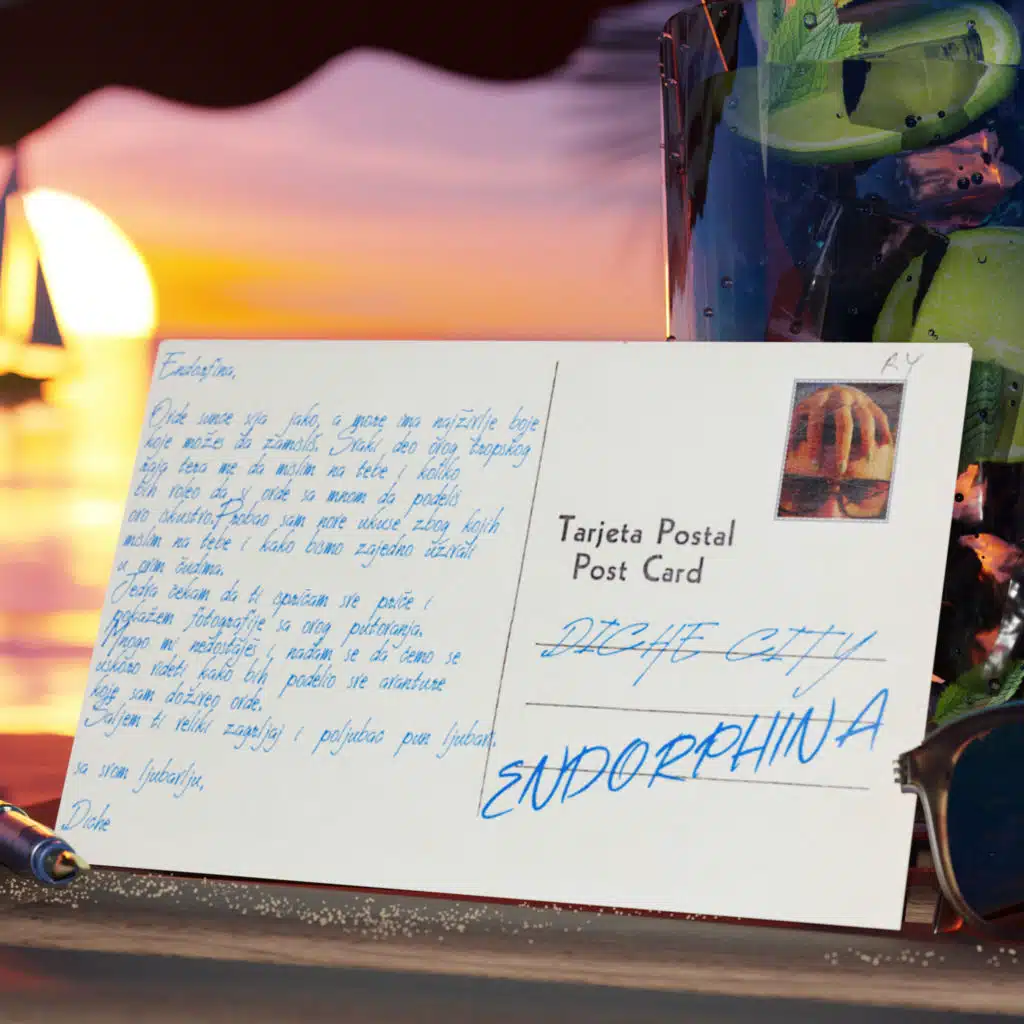 Endorfina,
Ovde sunce sija jako, a more ima najživlje boje
koje možeš da zamisliš. Svaki deo ovog tropskog
raja tera me da mislim na tebe i koliko
bih voleo da si ovde sa mnom da podeliš
ovo iskustvo. Probao sam nove ukuse zbog kojih
mislim na tebe i kako bismo zajedno uživali
u ovim čudima.
Jedva čekam da ti ispričam sve priče i
pokažem fotografije sa ovog putovanja.
Mnogo mi nedostaješ i, nadam se da ćemo se
uskoro videti kako bih podelio sve avanture
koje sam doživeo ovde.
Šaljem ti veliki zagrljaj i poljubac pun ljubavi.
sa svom ljubavlju,
Diche
RY
Tarjeta Postal
Post Card
DICHE CITY
ENDORPHINA